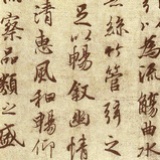 以為流觴曲水
無絲竹管弦之
足以暢叙幽情
清惠風和暢仰
察品類之盛